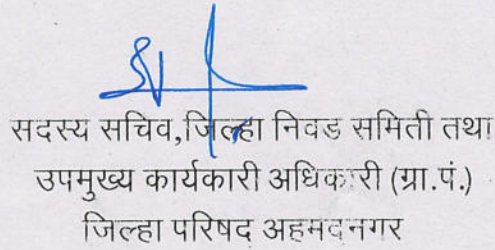 सदस्य सचिव,जिल्हा निवड समिती तथा
उपमुख्य कार्यकारी अधिकारी (ग्रा.पं.)
जिल्हा परिषद अहमदनगर